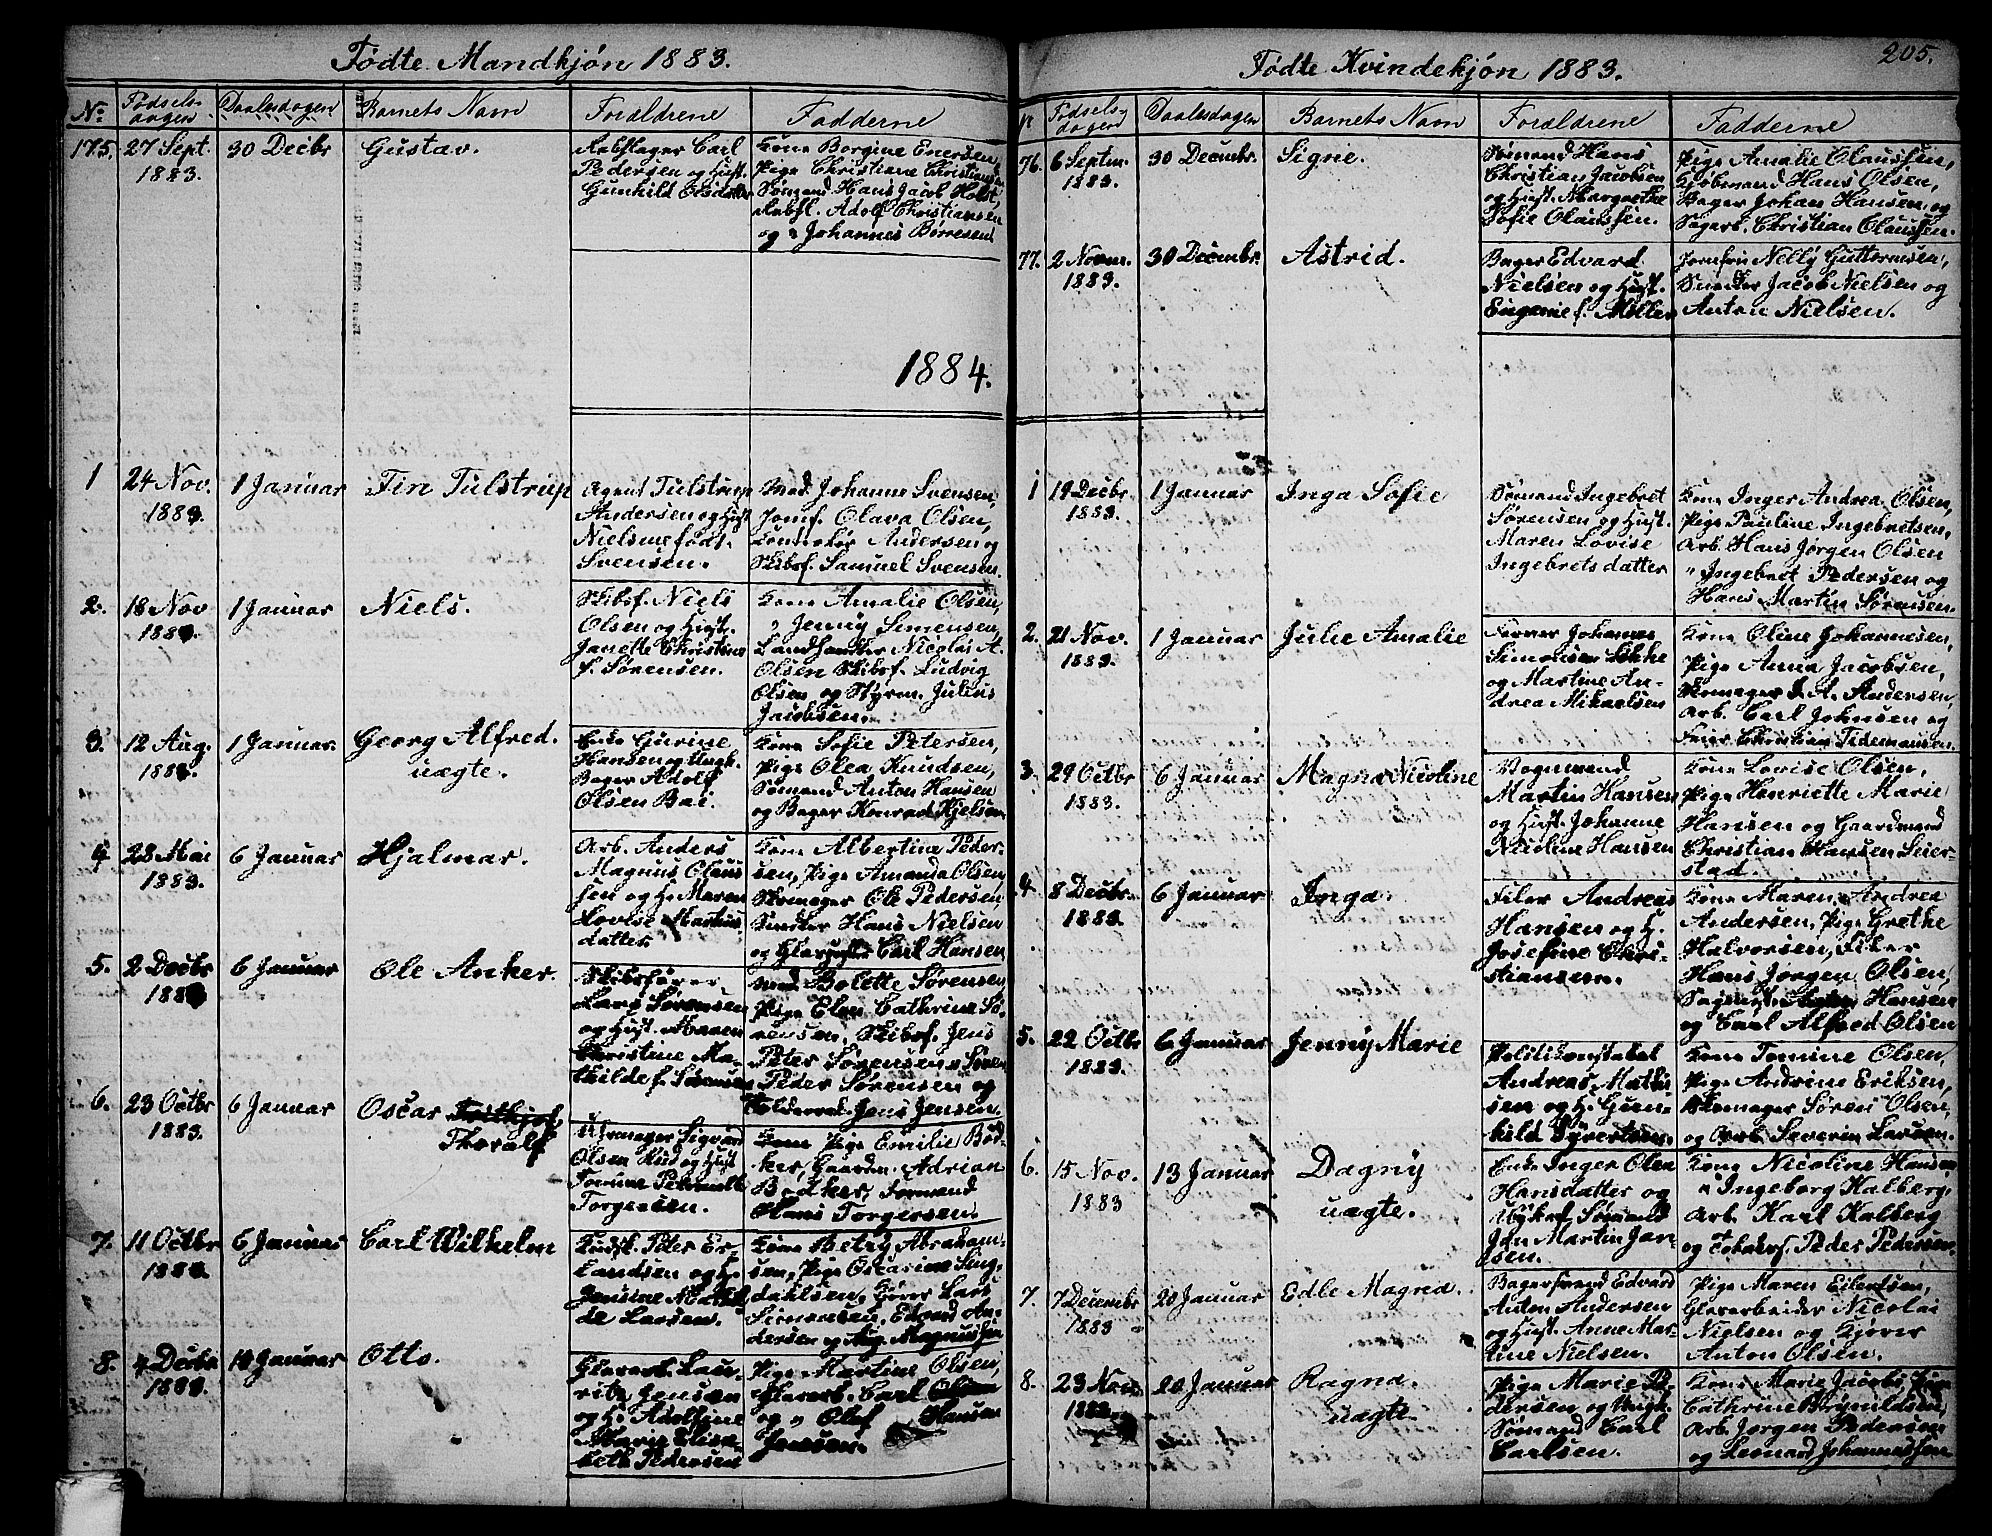 Fødte Mandkjøn 1883.
No Fødselsdagen Daabsdagen Barnets Navn Forældrene Fadderne
175. 27 Sept. 1883. 30 Decbr Gustav.
Carl
Pedersen og Hust.
Gunhild Olsdatter
Kone Borgine Enersen,
Pige Christiane Christiansen
Sømand Hans Jacob Holst,
Adolf Christiansen
og " Johannes Børresen.
1884.
1 24 Nov. 1883. 1 Januar Fin Tulstrup
Agent Tulstrup
Andersen og Hust
Nielsine født
Svensen.
Mad. Johanne Svensen,
Jomf. Olava Olsen,
Andersen og
Skibsf. Samuel Svensen.
2. 18 Nov 1883. 1 Januar Niels.
Skibsf. Niels
Olsen og Hust.
Janette Christine
f. Sørensen.
Kone Amalie Olsen,
" Jenny Simensen,
Landhandler Nicolai A.
Olsen Skibsf. Ludvig
Olsen og Styrm. Julius
Jacobsen.
3. 12 Aug. 1883. 1 Januar. Georg Alfred.
uægte.
Enke Gurine
Hansen og Ungk.
Bager Adolf
Olsen Bai.
Kone Sofie Petersen,
Pige Olea Knudsen,
Sømand Anton Hansen
og Bager Konrad Kjelsen
4. 28 Mai 1883. 6 Januar Hjalmar.
Arb. Anders
Magnus Claus
sen og H. Maren
Lovise Markus
datter
Kone Albertine Peder-
sen, Pige Amanda Olsen,
Skomager Ole Pedersen
Snedker Hans Nielsen
og Carl Hansen
5. 2 Decbr 1883 6 Januar Ole Anker.
Skibsfører
Lars Sørensen
og Hust. Maren
Christine Ma-
thilde f. Sørensen
Mad. Bolette Sørensen,
Pige Elen Cathrine Sø-
rensen, Skibsf. Jens
Peter Sørensen
Peder Sørensen og
Jens Jensen.
6. 23 Octbr 1883. 6 Januar Oscar Frithjof
Thoralf
Uhrmager Sigvard
Olsen Hud og Hust
Tomine
Torgersen.
Kone Pige Emilie Bød-
ker, Gaardm. Adrian
Bødker, Formand
Hans Torgersen.
7. 11 Octbr 1883. 6 Januar Carl Wilhelm
Kudsk. Peter Er-
landsen og H.
Jensine Mathil
de Larsen.
Kone Betzy Abraham-
sen, Pige Oscarine Sing-
dahlsen, Kjører Lars
Simensen, Edvard An-
dersen og Aug. Magnussen
8. 4 Decbr 1883. 10 Januar Otto.
Glarerb. Lau-
ritz Jensen
og H. Adolfine
Marie Elisa-
beth Pedersen
Pige Martine Olsen,
Glarerb. Carl Olsen
og " Olof Hansen
Jensen.
Fødte Kvindekjøn 1883. 205.
Fødselsdagen Daabsdagen Barnets Navn Forældrene Fadderne
76. 6 Septm. 1883. 30 Decembr. Signe.
Sømand Hans
Christian Jacobsen
og Hust. Margrethe
Sofie Olaussen.
Pige Amalie Olaussen,
Kjøbmand Hans Olsen,
Bager Johan Hansen og
Sagarb. Christian Olaussen.
77. 2 Novm. 1883. 30 Decembr. Astrid.
Bager Edvard
Nielsen og Hust.
Eugenie f. Møller
Jomfru Nelly Guttormsen,
Snedker Jacob Nielsen og
Anton Nielsen.
1 19 Decbr 1883. 1 Januar Inga Sofie
Sømand Ingebret
Sørensen og Hust.
Maren Lovise
Ingebretsdatter
Kone Inger Andrea Olsen,
Pige Pauline Ingebretsen,
Arb. Hans Jørgen Olsen
" Ingebret Pedersen og
Hans Martin Sørensen.
2. 21 Nov. 1883. 1 Januar Julie Amalie
Johannes
Simonsen Løkke
og Martine An-
drea Mikaelsen
Kone Oline Johannesen,
Pige Anna Jacobsen,
Skomager S. A. Andersen,
Arb. Carl Johnsen og
Feier Christian Tidemansen.
3. 29 Octbr 1883. 6 Januar Magna Nicoline
Vognmand
Martin Hansen
og Hust. Johanne
Nicoline Hansen
Kone Lovise Olsen,
Pige Henriette Marie
Hansen og Gaardmand
Christian Hansen Seier-
stad.
4. 8 Decbr. 1883. 6 Januar Inga.
Filer Andreas
Hansen og H.
Josefine Chris-
tiansen.
Kone Maren Andrea
Andersen, Pige Grethe
Halvorsen, Filer
Hans Jørgen Olsen,
Hansen
og Carl Alfred Olsen
5. 22 Octbr 1883. 6 Januar Jenny Marie
Politikonstabel
Andreas Mathi
sen og H. Gun-
hild Syvertsen.
Kone Tomine Olsen,
Pige Andrine Eriksen,
Skomager Søren Olsen,
og Arb. Severin Larsen.
6. 15 Nov. 1883 13 Januar Dagny
uægte.
Enke Inger Olea
Hansdatter og
Sømand
Jan Martin Jan-
sen.
Kone Nicoline Hansen
" Ingeborg Kalberg.
Arb. Karl Kalberg
og Peder Pedersen.
7. 7 Decembr 1883 20 Januar Edle Magna.
Bagersvend Edvard
Anton Andersen
og Hust. Anne Mar-
tine Nielsen.
Pige Maren Eilertsen,
Glasarbeider Nicolai
Nielsen og Kjører
Anton Olsen.
8. 23 Nov. 1883. 20 Januar Ragna.
uægte
Pige Marie Pe-
dersen og Ungk.
Sømand Carl
Carlsen.
Kone Marie Jacobs,
Cathrine Brynildsen,
Arb. Jørgen Pedersen
og Leonard Johannessen